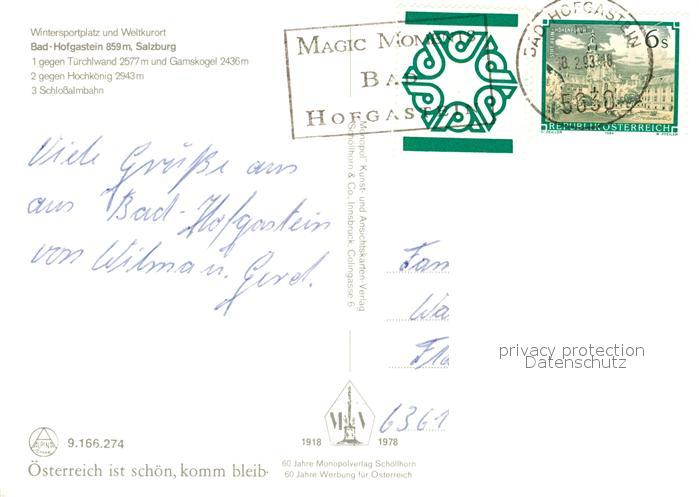 Wintersportplatz und Weltkurort
Bad-Hofgastein 859m, Salzburg
1 gegen Türchlwand 2577m und Gamskogel 2436m
2 gegen Hochkönig 2943m
3 Schloßalmbahn
MAGIC MOMENTS
BAD
HOFGASTEIN
BAD HOFGASTEIN
5630
6s
REPUBLIK ÖSTERREICH
Viele Grüße aus
aus Bad-Hofgastein
von Wilma u. Gerd.
"Monopol" Kunst- und Ansichtskarten-Verlag
Schöllhorn & Co., Innsbruck, Colingasse 6
Fam
Wa
6361
privacy protection
Datenschutz
M V
1918 1978
60 Jahre Monopolverlag Schöllhorn
60 Jahre Werbung für Österreich
9.166.274
Österreich ist schön, komm bleib·